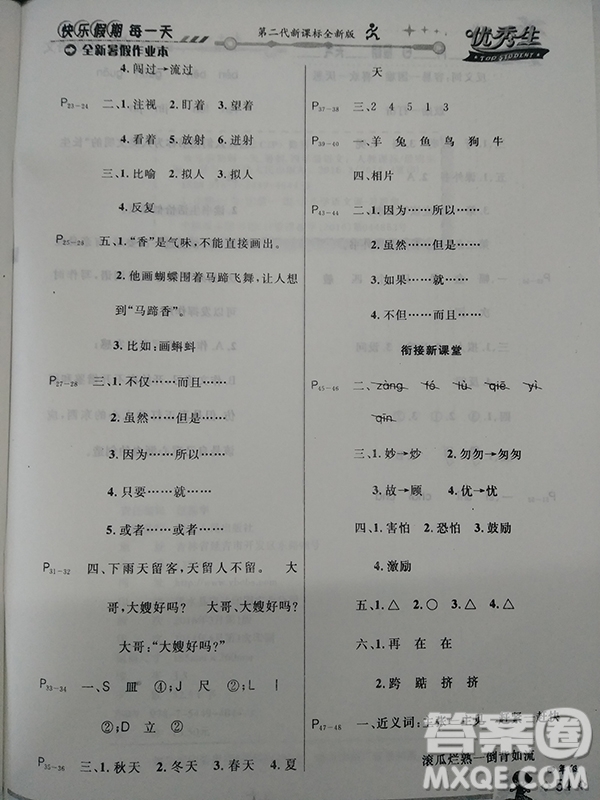 快乐假期 每一天
全新暑假作业本
第二代新课标全新版
优秀生
TOP STUDENT
4.闯过→流过
P23-24 二、1.注视 2.盯着 3.望着
4.看着 5.放射 6.迸射
三、1.比喻 2.拟人 3.拟人
4.反复
P25-26 五、1.“香”是气味，不能直接画出。
2.他画蝴蝶围着马蹄飞舞，让人想
到“马蹄香”。
3.比如：画蝌蚪
P27-28 三、1.不仅……而且……
2.虽然……但是……
3.因为……所以……
4.只要……就……
5.或者……或者……
P31-32 四、下雨天留客，天留人不留。 大
哥，大嫂好吗？ 大哥、大嫂好吗？
大哥：“大嫂好吗？”
P33-34 一、S 皿 ④；J 尺 ②；L 丨
②；D 立 ②
P35-36 三、1.秋天 2.冬天 3.春天 4.夏
天
P37-38 三、2 4 5 1 3
P39-40 一、羊 兔 鱼 鸟 狗 牛
四、相片
P43-44 二、1.因为……所以……
2.虽然……但是……
3.如果……就……
4.不但……而且……
衔接新课堂
P45-46 二、zàng fó lù qiē yì
qīn
三、1.妙→炒 2.勿勿→匆匆
3.故→顾 4.优→忧
四、1.害怕 2.恐怕 3.鼓励
4.激励
五、1.△ 2.○ 3.△ 4.△ 5.△
六、1.再 在 在
2.跨 踮 挤 挤
P47-48 一、近义词：
滚瓜烂熟—倒背如流
答案圈
MXQE.COM